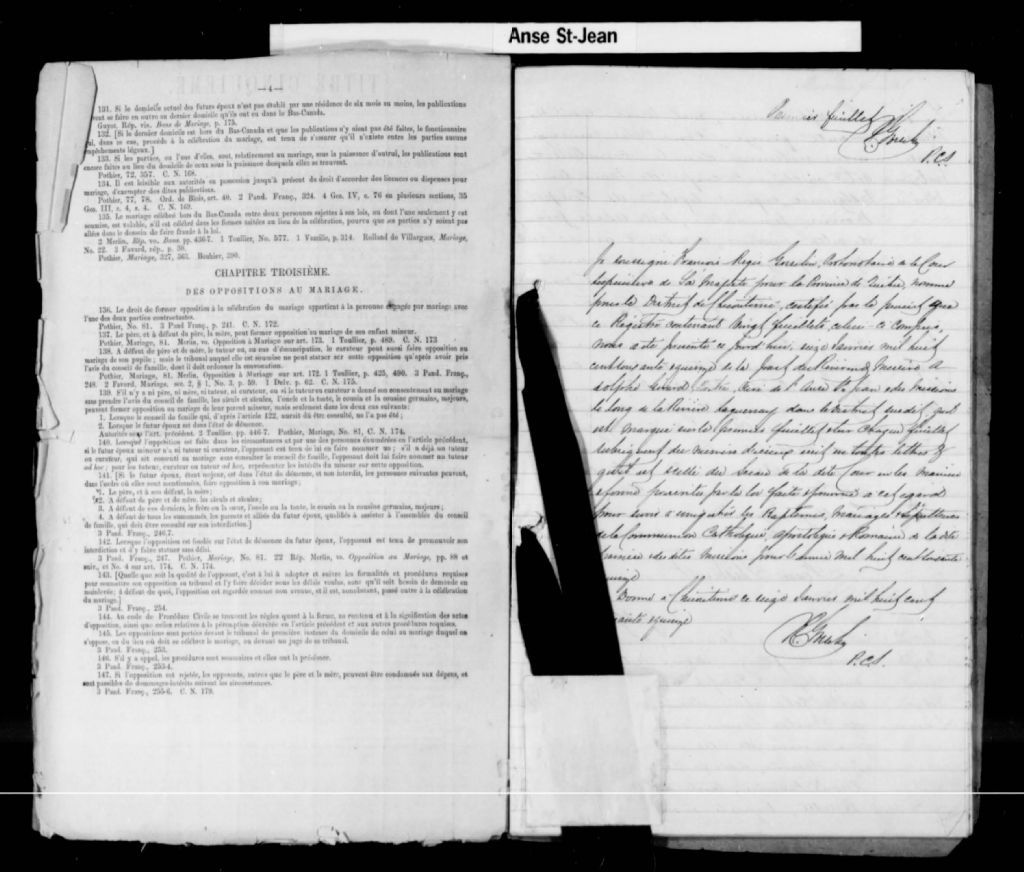 Anse St-Jean
—4—
131. Si le domicile actuel des futurs époux n'est pas établi par une résidence de six mois au moins, les publications
se faire en outre au dernier domicile qu'ils ont eu dans le Bas-Canada.
Guyot, Rép. vis. Bans de Mariage, p. 175.
132. [Si le dernier domicile est hors du Bas-Canada et que les publications n'y aient pas été faites, le fonctionnaire
dans ce cas, procède à la célébration du mariage, est tenu de s'assurer qu'il n'existe entre les parties aucuns
empêchements légaux.]
133. Si les parties, ou l'une d'elles, sont, relativement au mariage, sous la puissance d'autrui, les publications sont
encore faites au lieu du domicile de ceux sous la puissance desquels elles se trouvent.
Pothier, 72, 357. C. N. 168.
134. Il est loisible aux autorités en possession jusqu'à présent du droit d'accorder des licences ou dispenses pour
mariage, d'exempter des dites publications.
Pothier, 77, 78. Ord. de Blois, art. 40. 2 Pand. Franç., 324. 4 Geo. IV, c. 76 en plusieurs sections, 35
Geo. III, c. 4, s. 4. C. N. 169.
135. Le mariage célébré hors du Bas-Canada entre deux personnes sujettes à ses lois, ou dont l'une seulement y est
soumise, est valable, s'il est célébré dans les formes usitées au lieu de la célébration, pourvu que ces parties n'y soient pas
allées dans le dessein de faire fraude à la loi.
2 Merlin, Rép. vo. Bans pp. 436-7. 1 Toullier, No. 577. 1 Vazille, p. 314. Rolland de Villargues, Mariage,
No. 22. 2 Favard, rép., p.
Pothier, Mariage, 327, 363. Bouhier,
CHAPITRE TROISIÈME.
DES OPPOSITIONS AU MARIAGE.
136. Le droit de former opposition à la célébration du mariage appartient à la personne engagée par mariage avec
l'une des deux parties contractantes.
Pothier, No. 81. 3 Pand Franç., p. 241. C. N. 172.
137. Le père, et à défaut du père, la mère, peut former opposition au mariage de son enfant mineur.
Pothier, Mariage, 81. Merlin, vo. Opposition à Mariage sur art. 173. 1 Toullier, p. 489. C. N. 173
138. A défaut de père et de mère, le tuteur ou, au cas d'émancipation, le curateur peut aussi faire opposition au
mariage de son pupille; mais le tribunal auquel elle est soumise ne peut statuer sur cette opposition qu'après avoir pris
l'avis du conseil de famille, dont il doit ordonner la convocation.
Pothier, Mariage, 81. Merlin, Opposition à Mariage sur art. 172. 1 Toullier, p. 425, 490. 3 Pand. Franç.,
248. 2 Favard, Mariage, sec. 2, § 1, No. 3, p. 59. 1 Delv. p. 62. C. N. 175.
139. S'il n'y a ni père, ni mère, ni tuteur, ni curateur, ou si le tuteur ou curateur a donné son consentement au mariage
sans prendre l'avis du conseil de famille, les aïeuls et aïeules, l'oncle et la tante, le cousin et la cousine germains, majeurs,
peuvent former opposition au mariage de leur parent mineur, mais seulement dans les deux cas suivants:
1. Lorsque le conseil de famille qui, d'après l'article 122, aurait dû être consulté, ne l'a pas été;
2. Lorsque le futur époux est dans l'état de démence.
Autorités sous l'art. précédent. 2 Toullier, pp. 446-7. Pothier, Mariage, No. 81. C. N. 174.
140. Lorsque l'opposition est faite dans les circonstances et par une des personnes énumérées en l'article précédent,
si le futur époux mineur n'a ni tuteur ni curateur, l'opposant est tenu de lui en faire nommer un; s'il a déjà un tuteur
ou curateur, qui ait consenti au mariage sans consulter le conseil de famille, l'opposant doit lui faire nommer un tuteur
ad hoc; pour les tuteur, curateur ou tuteur ad hoc, représenter les intérêts du mineur sur cette opposition.
141. [Si le futur époux, étant majeur, est dans l'état de démence, et non interdit, les personnes suivantes peuvent,
dans l'ordre où elles sont mentionnées, faire opposition à son mariage;
1. Le père, et à son défaut, la mère;
2. A défaut de père et de mère, les aïeuls et aïeules;
3. A défaut de ces derniers, le frère ou la sœur, l'oncle ou la tante, le cousin ou la cousine germains, majeurs;
4. A défaut de tous les susnommés, les parents et alliés du futur époux, qualifiés à assister à l'assemblée du conseil
de famille, qui doit être consulté sur son interdiction.]
3 Pand. Franç., 246,7.
142. Lorsque l'opposition est fondée sur l'état de démence du futur époux, l'opposant est tenu de promouvoir son
interdiction et d'y faire statuer sans délai.
3 Pand. Franç., 247. Pothier, Mariage, No. 81. 22 Rép. Merlin, vo. Opposition au Mariage, pp. 88 et
suiv., et No. 4 sur art. 174. C. N. 174.
143. [Quelle que soit la qualité de l'opposant, c'est à lui à adopter et suivre les formalités et procédures requises
pour soumettre son opposition au tribunal et l'y faire décider sous les délais voulus, sans qu'il soit besoin de demande en
mainlevée; à défaut de quoi, l'opposition est regardée comme non avenue, et il est, nonobstant, passé outre à la célébration
du mariage.]
3 Pand. Franç., 254.
144. Au code de Procédure Civile se trouvent les règles quant à la forme, au contenu et à la signification des actes
d'opposition, ainsi que celles relatives à la péremption décrétée en l'article précédent et aux autres procédures requises.
145. Les oppositions sont portées devant le tribunal de première instance du domicile de celui au mariage duquel on
s'oppose, ou du lieu où doit se célébrer le mariage, ou devant un juge de ce tribunal.
3 Pand. Franç., 253.
146. S'il y a appel, les procédures sont sommaires et elles ont la préséance.
3 Pand. Franç., 253-4.
147. Si l'opposition est rejetée, les opposants, autres que le père et la mère, peuvent être condamnés aux dépens, et
sont passibles de dommages-intérêts suivant les circonstances.
3 Pand. Franç., 255-6. C. N. 179.
Premier feuillet
P.C.S.
Je soussigné François Regis Gosselin, Protonotaire de la Cour
Superieure de Sa Majesté pour la Province de Quebec, nommé
pour le District de Chicoutimi, certifie par le present que
ce Registre contenant Vingt feuillets, celui-ci compris,
nous a été presenté ce jourd'hui, seize Janvier mil huit
cent soixante et quinze de la part du Reverend Messire A
dolphe Girard Prêtre, Curé de l'Anse St Jean et des missions
le long de la Riviere Saguenay dans le District susdit, qu'il
est marqué sur le premier feuillet et sur chaque feuillet
subsequent du numero d'iceux écrit en toutes lettres &
qu'il est scellé du sceau de la dite Cour en la maniere
et forme prescrites par la loi faite et pourvue à cet egard
pour servir à enregistrer les Baptêmes, mariages & Sepultures
de la Communion Catholique, Apostolique & Romaine de la dite
et des dites missions pour l'année mil huit cent soixante
Donné à Chicoutimi ce seize Janvier mil huit cent
P.C.S.